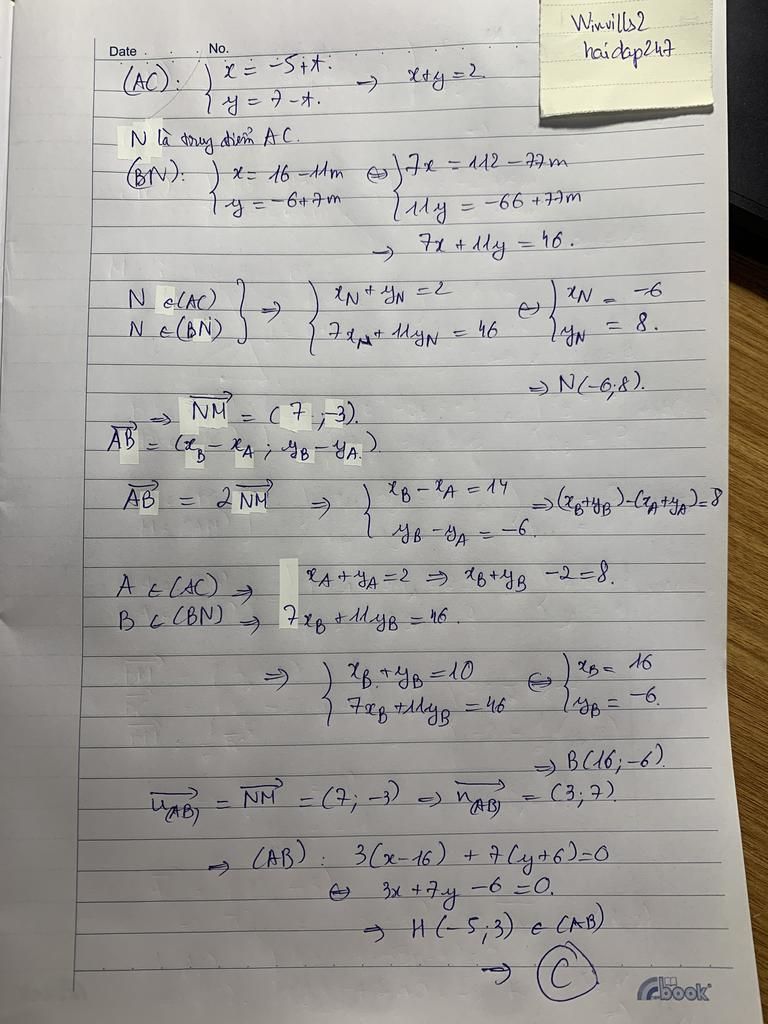 Winvills2
haidap247
Date No.
(AC): { x = -5+t. → x+y = 2.
y = 7-t.
N là trung điểm AC.
(BN): { x = 16-11m ⇔ { 7x = 112-77m
y = -6+7m 11y = -66+77m
→ 7x+11y = 46.
N ∈(AC) } ⇒ { x_N + y_N = 2 ⇔ { x_N = -6
N ∈(BN) 7x_N + 11y_N = 46 y_N = 8.
⇒ N(-6;8).
⇒ \overrightarrow{NM} = (7;-3).
\overrightarrow{AB} = (x_B - x_A ; y_B - y_A).
\overrightarrow{AB} = 2\overrightarrow{NM} ⇒ { x_B - x_A = 14 ⇒ (x_B+y_B)-(x_A+y_A)=8
y_B - y_A = -6.
A ∈ (AC) → x_A + y_A = 2 ⇒ x_B + y_B - 2 = 8.
B ∈ (BN) → 7x_B + 11y_B = 46.
⇒ { x_B + y_B = 10 ⇔ { x_B = 16
7x_B + 11y_B = 46 y_B = -6.
⇒ B(16;-6).
\overrightarrow{u_{(AB)}} = \overrightarrow{NM} = (7;-3) ⇒ \overrightarrow{n_{(AB)}} = (3;7).
⇒ (AB): 3(x-16) + 7(y+6)=0
⇔ 3x+7y-6=0.
⇒ H(-5;3) ∈ (AB)
⇒ C
ebook